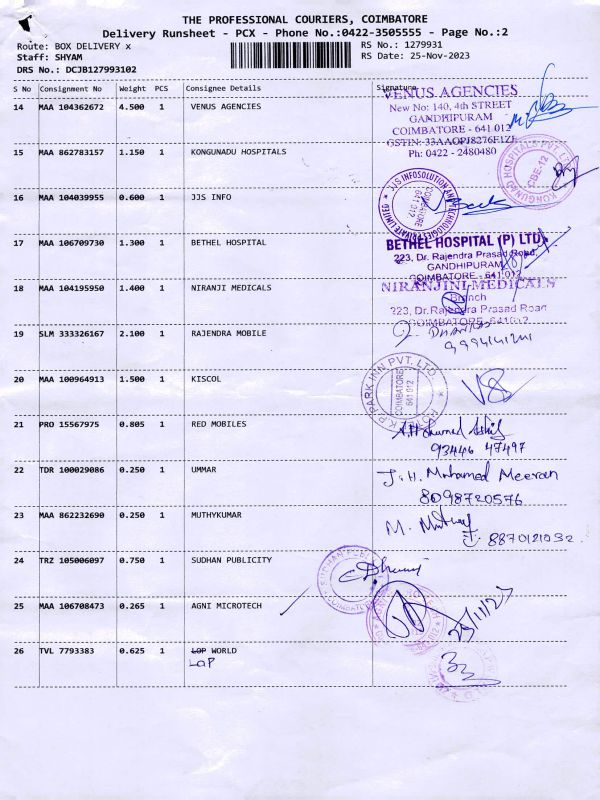 THE PROFESSIONAL COURIERS, COIMBATORE
Delivery Runsheet - PCX - Phone No.:0422-3505555 - Page No.:2
Route: BOX DELIVERY x
RS No.: 1279931
Staff: SHYAM
RS Date: 25-Nov-2023
DRS No.: DCJB127993102
S No Consignment No Weight PCS Consignee Details Signature
14 MAA 104362672 4.500 1 VENUS AGENCIES
VENUS AGENCIES
New No: 140, 4th STREET
GANDHIPURAM
COIMBATORE - 641 012
GSTIN: 33AAOPJ8276F1ZF
Ph: 0422 - 2480480
15 MAA 862783157 1.150 1 KONGUNADU HOSPITALS
KONGUNAD HOSPITALS PVT. LTD.
CBE-12
16 MAA 104039955 0.600 1 JJS INFO
JJS INFOSOLUTION AND TECHNOLOGIES PRIVATE LIMITED
COIMBATORE
641 012
17 MAA 106709730 1.300 1 BETHEL HOSPITAL
BETHEL HOSPITAL (P) LTD.
223, Dr. Rajendra Prasad Road,
GANDHIPURAM
COIMBATORE - 641 012
18 MAA 104195950 1.400 1 NIRANJI MEDICALS
NIRANJINI MEDICALS
Branch
223, Dr.Rajendra Prasad Road
COIMBATORE - 641012
19 SLM 333326167 2.100 1 RAJENDRA MOBILE
20 MAA 100964913 1.500 1 KISCOL
K.P PARK INN PVT. LTD.
COIMBATORE
641 012
21 PRO 15567975 0.805 1 RED MOBILES
93446 47497
22 TDR 100029086 0.250 1 UMMAR
J.H. Mohamed Meeran
8098720576
23 MAA 862232690 0.250 1 MUTHYKUMAR
M.
8870121032
24 TRZ 105006097 0.750 1 SUDHAN PUBLICITY
25 MAA 106708473 0.265 1 AGNI MICROTECH
25/11/23
26 TVL 7793383 0.625 1 LOP WORLD
LAP